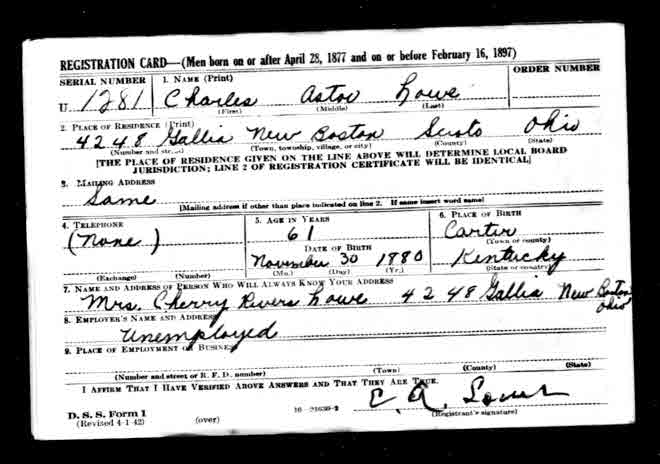 REGISTRATION CARD—(Men born on or after April 28, 1877 and on or before February 16, 1897)
SERIAL NUMBER 1. NAME (Print) ORDER NUMBER
U 1281 Charles Astor Lowe
(First) (Middle) (Last)
2. PLACE OF RESIDENCE (Print)
4248 Gallia New Boston Scioto Ohio
(Number and street) (Town, township, village, or city) (County) (State)
[THE PLACE OF RESIDENCE GIVEN ON THE LINE ABOVE WILL DETERMINE LOCAL BOARD
JURISDICTION; LINE 2 OF REGISTRATION CERTIFICATE WILL BE IDENTICAL]
3. MAILING ADDRESS
Same
[Mailing address if other than place indicated on line 2. If same insert word same]
4. TELEPHONE 5. AGE IN YEARS 6. PLACE OF BIRTH
(None) 61 Carter
DATE OF BIRTH (Town or county)
November 30 1880 Kentucky
(Exchange) (Number) (Mo.) (Day) (Yr.) (State or country)
7. NAME AND ADDRESS OF PERSON WHO WILL ALWAYS KNOW YOUR ADDRESS
Mrs. Cherry Rivers Lowe 4248 Gallia New Boston Ohio
8. EMPLOYER'S NAME AND ADDRESS
Unemployed
9. PLACE OF EMPLOYMENT OR BUSINESS
(Number and street or R. F. D. number) (Town) (County) (State)
I AFFIRM THAT I HAVE VERIFIED ABOVE ANSWERS AND THAT THEY ARE TRUE.
C. A. Lowe
D. S. S. Form 1 16—21630-2 (Registrant's signature)
(Revised 4-1-42) (over)